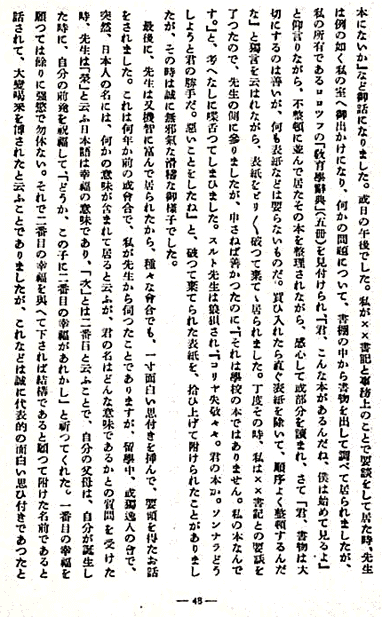 本にないか」など御話になりました。或日の午後でした。私が××書記と事務上のことで要談をして居た時、先生
は例の如く私の室へ御出かけになり、何かの問題について、書棚の中から書物を出して調べて居られましたが、
私の所有であるロロツフの「敎育學辭典」(五冊)を見付けられ、「君、こんな本があるんだね、僕は始めて見るよ」
と仰言りながら、不整頓に並んで居たその本を整理されながら、感心して或部分を讀まれ、さて「君、書物は大
切にするのは善いが、何も表紙などは要らないものだ。買ひ入れたら直ぐ表紙を除いて、順序よく整頓するんだ
な」と獨言を云はれながら、表紙をビリ〳〵破つて棄て居られました。丁度その時、私は××書記との要談を
了つたので、先生の側に參りましたが、申さねば善かつたのに「それは學校の本ではありません。私の本なんで
す。」と、考へなしに喋舌つてしまひました。スルト先生は狼狽され「コリヤ失敬々々。君の本か。ソンナラどう
しようと君の勝手だ。惡いことをしたね」と、破つて棄てられた表紙を、拾ひ上げて附けられたことがありまし
たが、その時は誠に無邪氣な滑稽な御樣子でした。
最後に、先生は又機智に富んで居られたから、種々な會合でも、一寸面白い思付きを挿んで、要領を得たお話
をされました。これは何年か前の或會合で、私が先生から伺つたことでありますが、留學中、或獨逸人の會で、
突然、日本人の名には、何かの意味が含まれて居ると云ふが、君の名はどんな意味であるかとの質問を受けた
時、先生は「榮」と云ふ日本語は幸福の意味であり、「次」とは二番目と云ふことで、自分の父母は、自分が誕生し
た時に、自分の前途を祝福して、「どうか、この子に二番目の幸福があれかし」と祈つてくれた。一番目の幸福を
願つては餘りに強慾で勿体ない。それで二番目の幸福を與へて下されば結構であると願つて附けた名前であると
話されて、大變喝采を博されたと云ふことでありましたが、これなどは誠に代表的の面白い思ひ付きであつたと
— 48 —